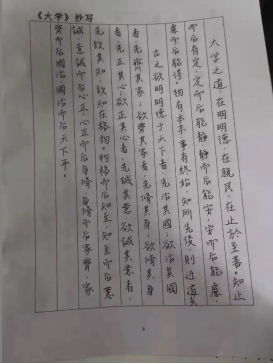 《大学》抄写
大学之道,在明明德,在親民,在止於至善。知止
而后有定,定而后能靜,靜而后能安,安而后能慮,
慮而后能得。物有本末,事有終始,知所先後,則近道矣。
古之欲明明德于天下者,先治其國;欲治其國
者,先齊其家;欲齊其家者,先修其身;欲修其身
者,先正其心;欲正其心者,先誠其意;欲誠其意者,
先致其知;致知在格物。物格而后知至,知至而后意
誠,意誠而后心正,心正而后身脩,身脩而后家齊,家
齊而后國治,國治而后天下平。